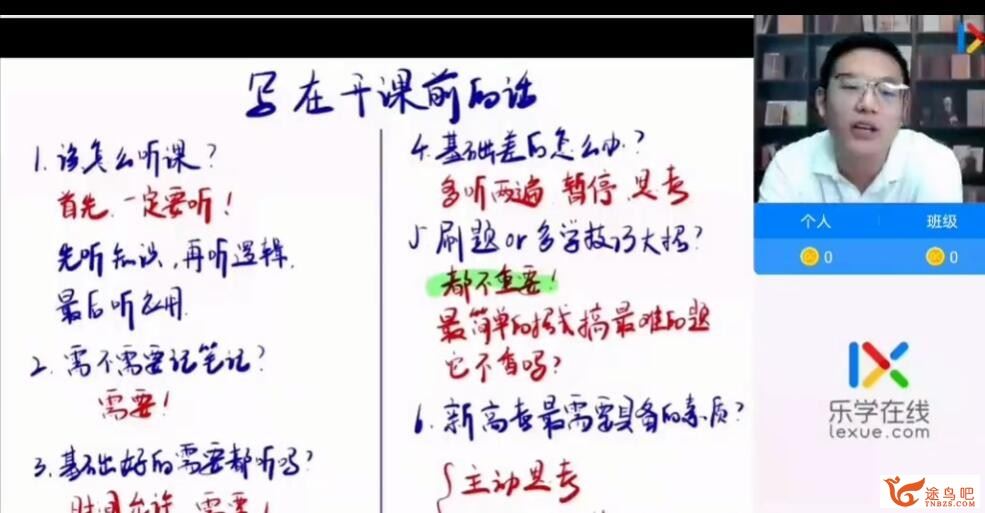 写在开课前的话
1. 该怎么听课?
首先,一定要听!
先听知识,再听逻辑,
最后听应用.
2. 需不需要记笔记?
需要!
3. 基础好的需要都听吗?
时间允许,需要!
4. 基础差的怎么办?
多听两遍 暂停 思考
5 刷题or多学技巧大招?
都不重要!
最简单的招式搞最难的题
它不香吗?
6. 新高考最需要具备的素质?
主动思考
个人
班级
0
0
乐学在线
lexue.com
途鸟吧
TNBZS.COM